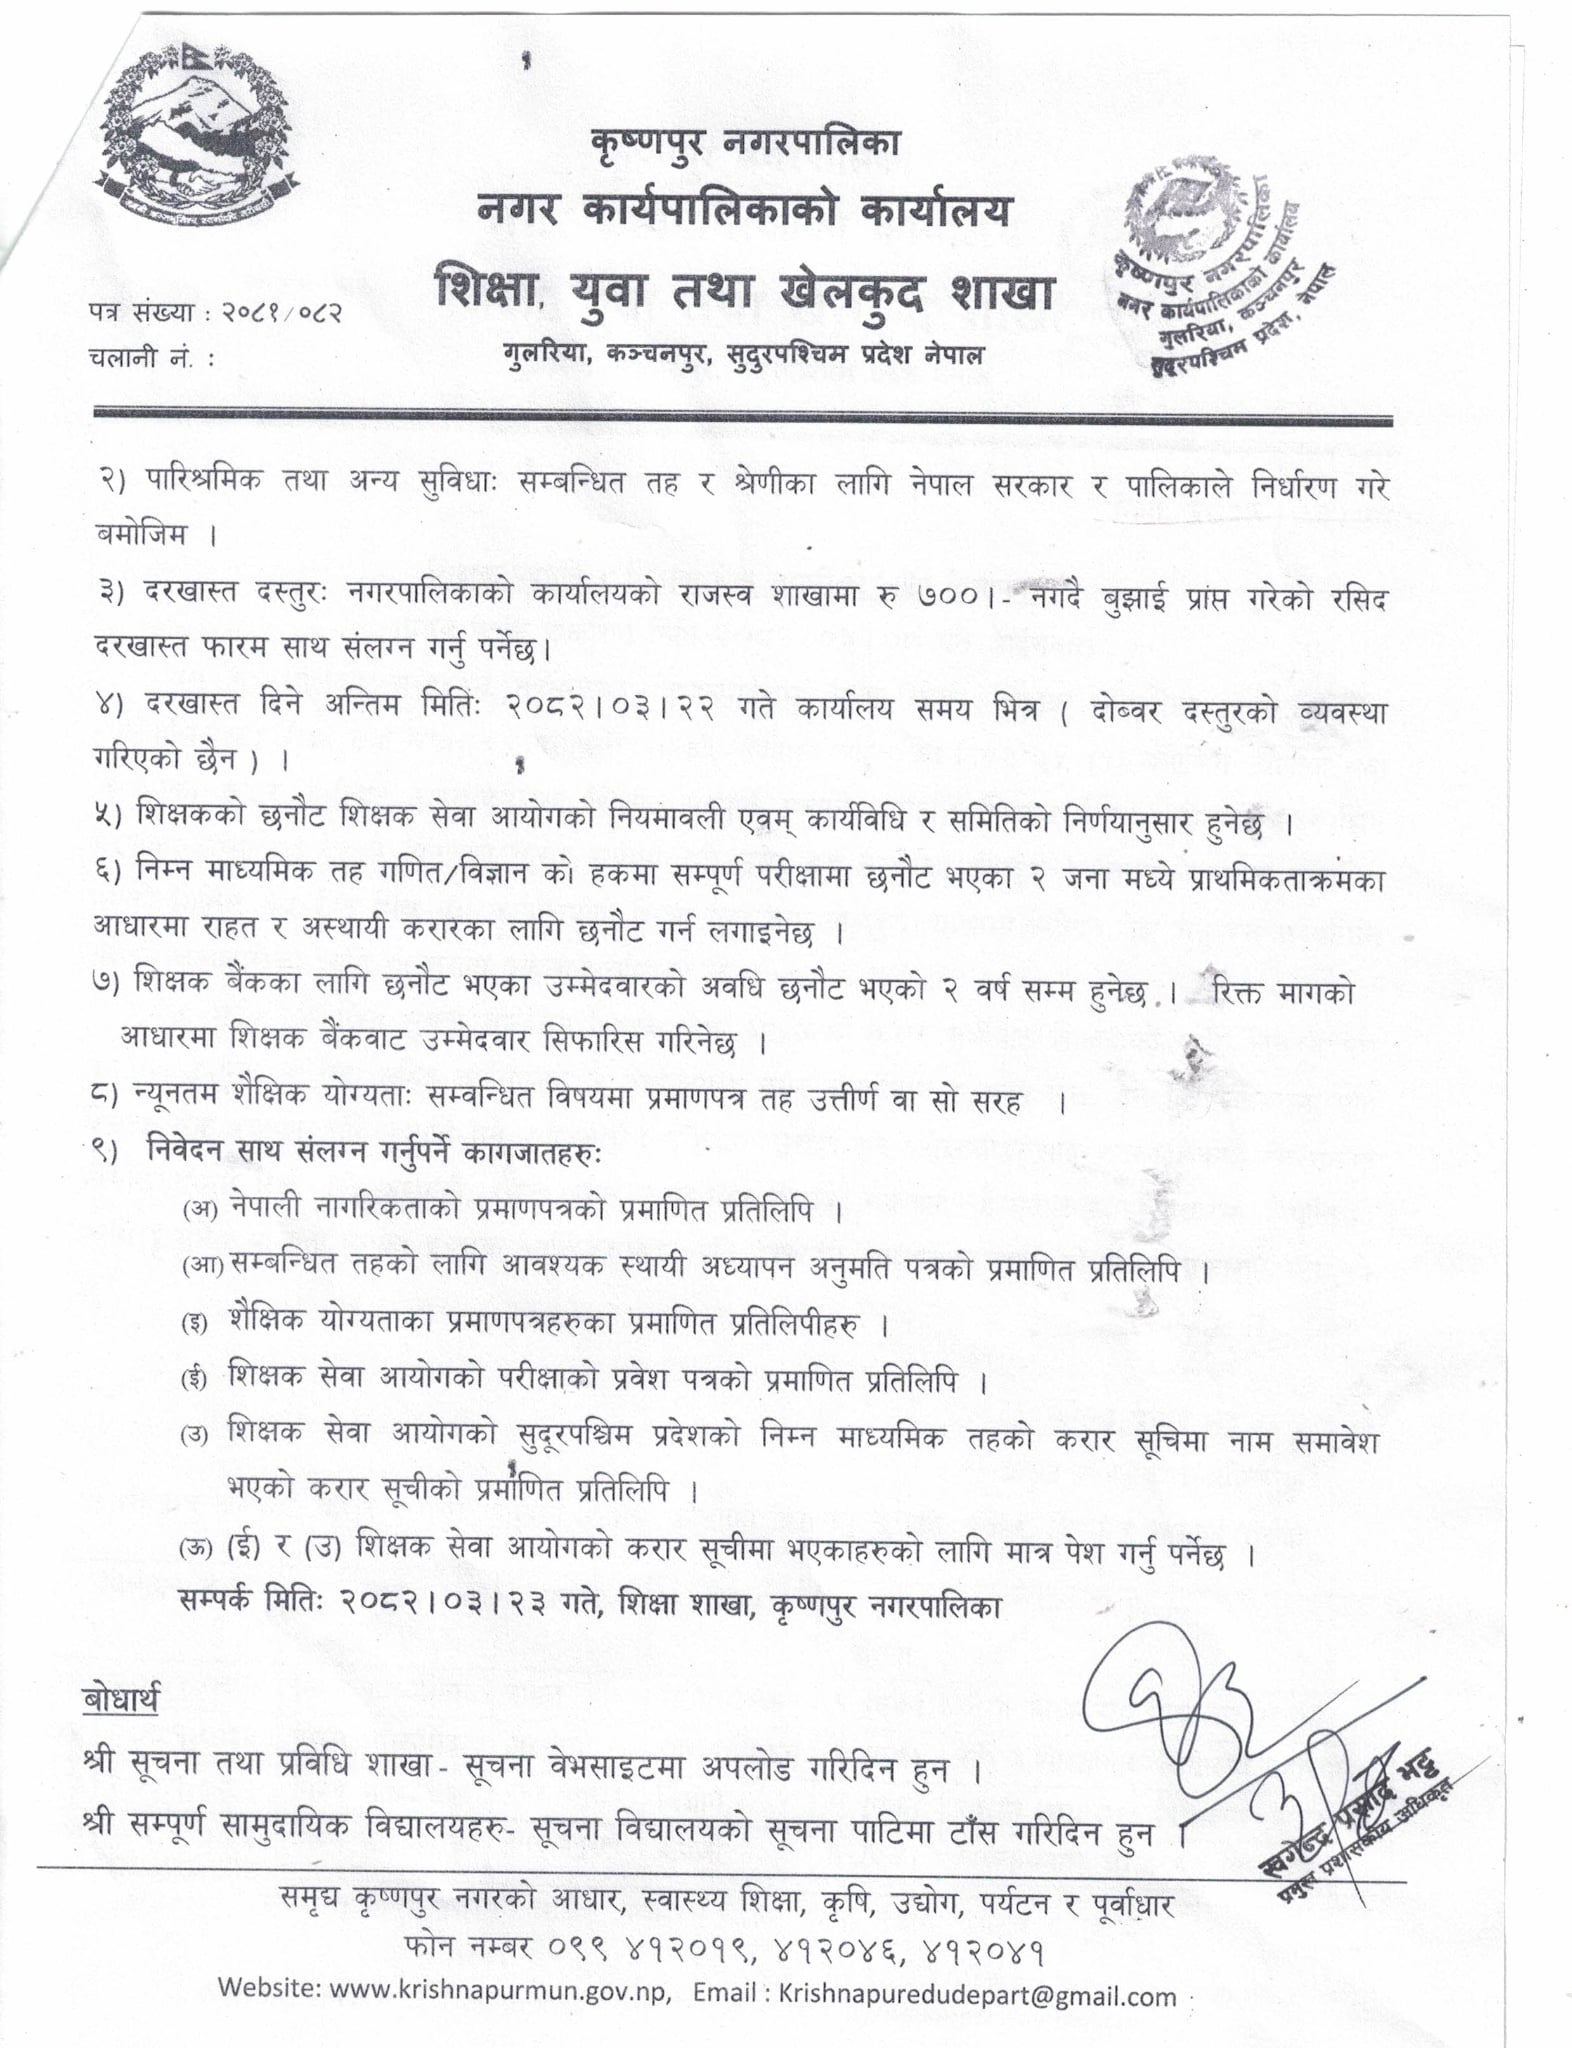 कृष्णपुर नगरपालिका
नगर कार्यपालिकाको कार्यालय
शिक्षा, युवा तथा खेलकुद शाखा
गुलरिया, कञ्चनपुर, सुदुरपश्चिम प्रदेश नेपाल
पत्र संख्या : २०८१/०८२
चलानी नं. :
कृष्णपुर नगरपालिका
नगर कार्यपालिकाको कार्यालय
गुलरिया, कञ्चनपुर
सुदूरपश्चिम प्रदेश, नेपाल
२) पारिश्रमिक तथा अन्य सुविधाः सम्बन्धित तह र श्रेणीका लागि नेपाल सरकार र पालिकाले निर्धारण गरे
बमोजिम ।
३) दरखास्त दस्तुरः नगरपालिकाको कार्यालयको राजस्व शाखामा रु ७००।- नगदै बुझाई प्राप्त गरेको रसिद
दरखास्त फारम साथ संलग्न गर्नु पर्नेछ।
४) दरखास्त दिने अन्तिम मितिः २०८२।०३।२२ गते कार्यालय समय भित्र ( दोब्वर दस्तुरको व्यवस्था
गरिएको छैन ) ।
५) शिक्षकको छनौट शिक्षक सेवा आयोगको नियमावली एवम् कार्यविधि र समितिको निर्णयानुसार हुनेछ ।
६) निम्न माध्यमिक तह गणित/विज्ञान को हकमा सम्पूर्ण परीक्षामा छनौट भएका २ जना मध्ये प्राथमिकताक्रमका
आधारमा राहत र अस्थायी करारका लागि छनौट गर्न लगाइनेछ ।
७) शिक्षक बैंकका लागि छनौट भएका उम्मेदवारको अवधि छनौट भएको २ वर्ष सम्म हुनेछ . । रिक्त मागको
आधारमा शिक्षक बैंकवाट उम्मेदवार सिफारिस गरिनेछ ।
८) न्यूनतम शैक्षिक योग्यताः सम्वन्धित विषयमा प्रमाणपत्र तह उत्तीर्ण वा सो सरह ।
९) निवेदन साथ संलग्न गर्नुपर्ने कागजातहरुः
(अ) नेपाली नागरिकताको प्रमाणपत्रको प्रमाणित प्रतिलिपि ।
(आ) सम्बन्धित तहको लागि आवश्यक स्थायी अध्यापन अनुमति पत्रको प्रमाणित प्रतिलिपि ।
(इ) शैक्षिक योग्यताका प्रमाणपत्रहरुका प्रमाणित प्रतिलिपीहरु ।
(ई) शिक्षक सेवा आयोगको परीक्षाको प्रवेश पत्रको प्रमाणित प्रतिलिपि ।
(उ) शिक्षक सेवा आयोगको सुदूरपश्चिम प्रदेशको निम्न माध्यमिक तहको करार सूचिमा नाम समावेश
भएको करार सूचीको प्रमाणित प्रतिलिपि ।
(ऊ) (ई) र (उ) शिक्षक सेवा आयोगको करार सूचीमा भएकाहरुको लागि मात्र पेश गर्नु पर्नेछ ।
सम्पर्क मितिः २०८२।०३।२३ गते, शिक्षा शाखा, कृष्णपुर नगरपालिका
बोधार्थ
श्री सूचना तथा प्रविधि शाखा - सूचना वेभसाइटमा अपलोड गरिदिन हुन ।
श्री सम्पूर्ण सामुदायिक विद्यालयहरु- सूचना विद्यालयको सूचना पाटिमा टाँस गरिदिन हुन ।
खगेन्द्र प्रसाद भट्ट
प्रमुख प्रशासकीय अधिकृत
समृद्य कृष्णपुर नगरको आधार, स्वास्थ्य शिक्षा, कृषि, उद्योग, पर्यटन र पूर्वाधार
फोन नम्बर ०९९ ४१२०१९, ४१२०४६, ४१२०४१
Website: www.krishnapurmun.gov.np, Email : Krishnapuredudepart@gmail.com